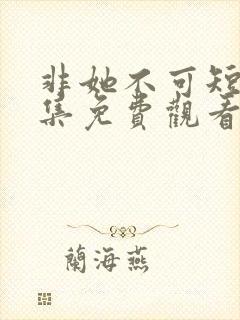 非她不可短
集免費觀看
蘭海燕